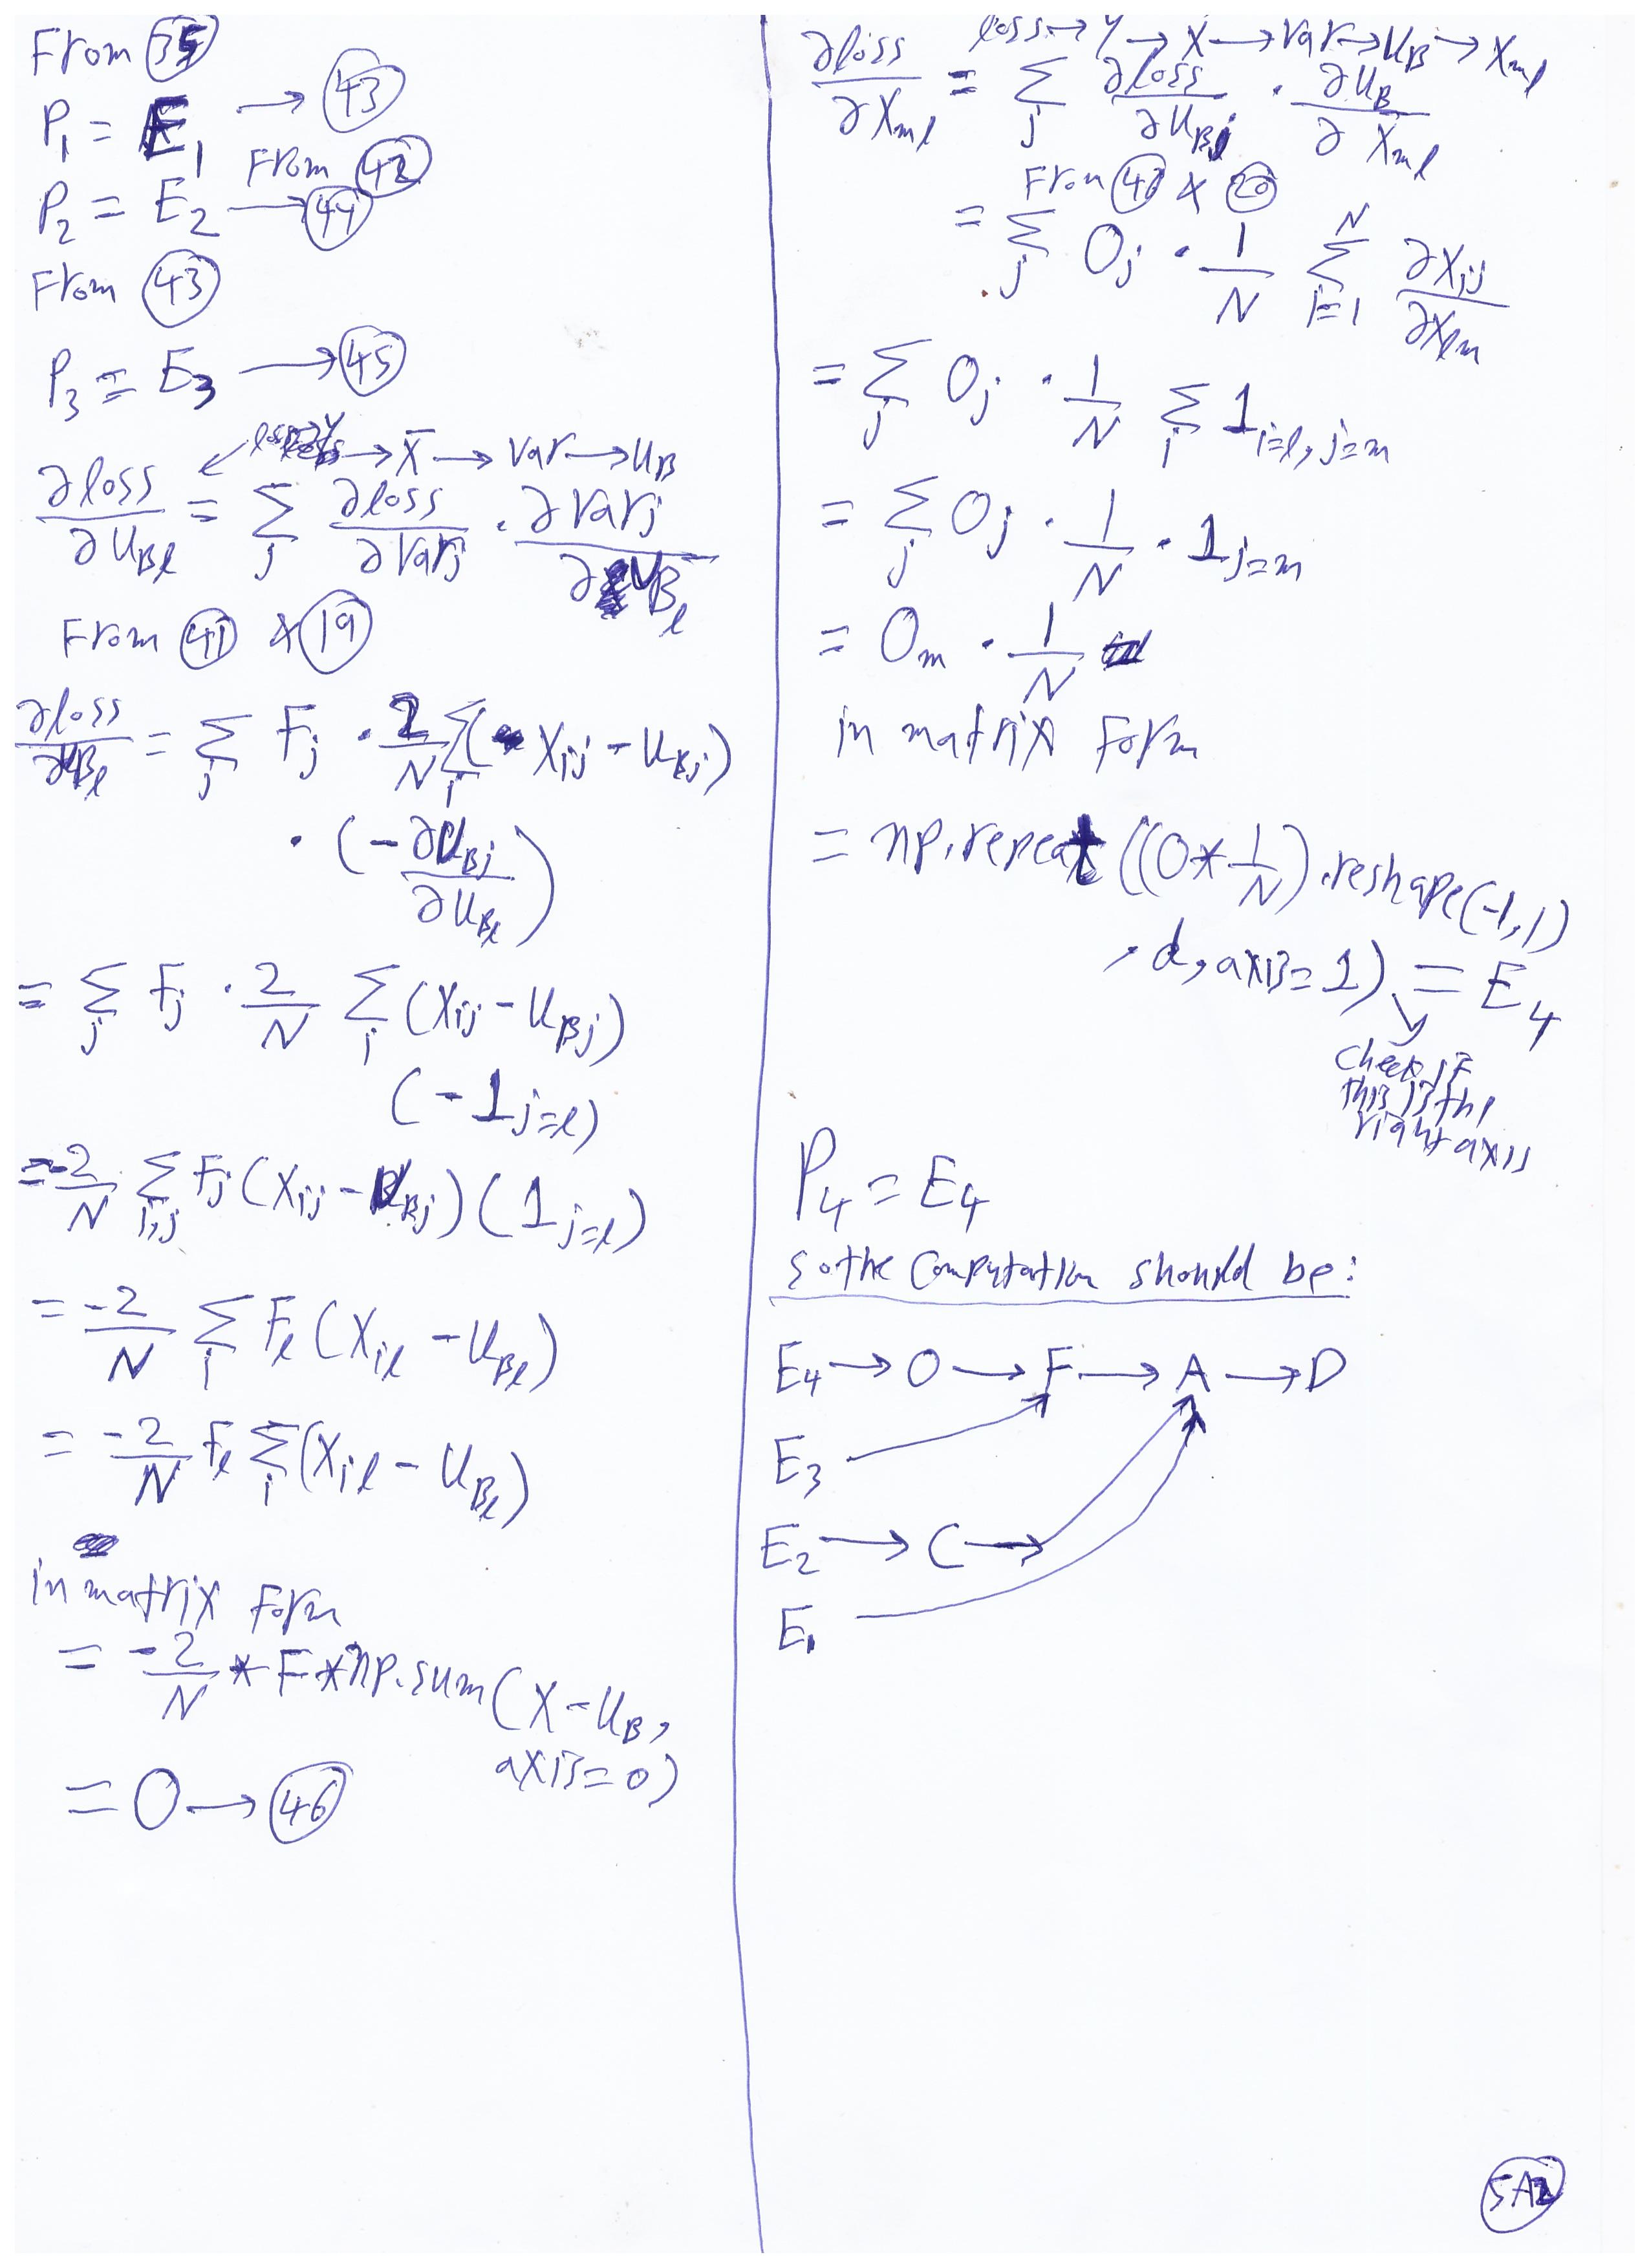 From (35)
P₁ = E₁ → (43)
From (42)
P₂ = E₂ → (44)
From (43)
P₃ = E₃ → (45)
→ X̄ → Var → U_B
∂loss/∂U_Bℓ = Σ_j ∂loss/∂Varj · ∂Varj/∂U_Bℓ
From (41) & (19)
∂loss/∂U_Bℓ = Σ_j Fj · 2/N Σ_i (X_ij - U_Bj)
· (-∂U_Bj/∂U_Bℓ)
= Σ_j Fj · 2/N Σ_i (X_ij - U_Bj)
(-1_{j=ℓ})
= -2/N Σ_{i,j} Fj (X_ij - U_Bj) (1_{j=ℓ})
= -2/N Σ_i F_ℓ (X_iℓ - U_Bℓ)
= -2/N F_ℓ Σ_i (X_iℓ - U_Bℓ)
in matrix form
= -2/N * F * np.sum(X - U_B,
axis=0)
= O → (46)
loss → Y → X → Var → U_B → X_mℓ
∂loss/∂X_mℓ = Σ_j ∂loss/∂U_Bj · ∂U_B/∂X_mℓ
From & (20)
= Σ_j Oj · 1/N Σ_{i=1}^N ∂X_ij/∂X_ℓm
= Σ_j Oj · 1/N Σ_i 1_{i=ℓ, j=m}
= Σ_j Oj · 1/N · 1_{j=m}
= O_m · 1/N
in matrix form
= np.repeat((O*1/N).reshape(-1,1)
, d, axis=1) = E₄
check if
this is the
right axis
P₄ = E₄
so the computation should be:
E₄ → O → F → A → D
E₃
E₂ → C →
E₁
5A2